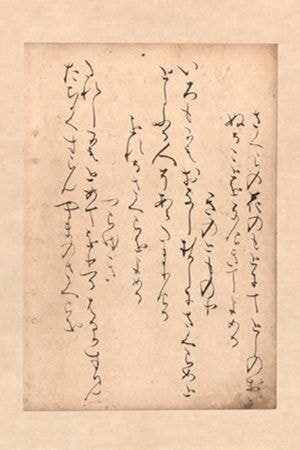 さくらの花のもとにてとしのおい
ぬることをなけきてよめる
きのとものり
いろもかもおなしむかしにさくらめと
としふる人そあらたまりける
をれるさくらをよめる
つらゆき
たれしかもとめてをりつるはるかすみ
たちかくすらんやまのさくらを